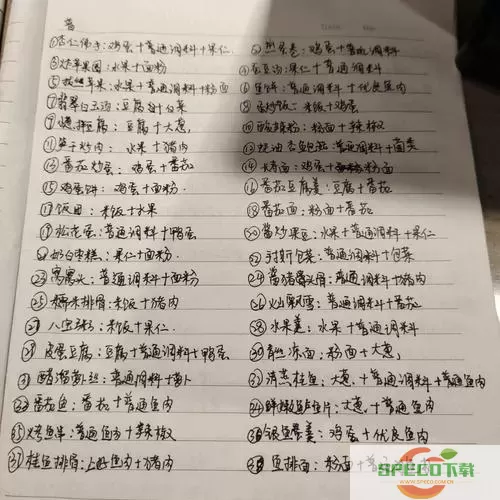 普
①杏仁佛手:鸡蛋+普通调料+果仁 ②煎蛋卷:鸡蛋+普通调料
③炸苹果圆:水果+面粉 ④蚕豆泥:果仁+普通调料
⑤拔丝苹果:水果+普通调料+面粉 ⑥鱼饼:普通调料+优良鱼肉
⑦翡翠白玉汤:豆腐+白菜 ⑧蛋炒饭:米饭+鸡蛋
⑨豆腐:豆腐+大葱 ⑩酸辣粉:粉面+辣椒
⑪笋子炒肉:水果+猪肉 ⑫蚝油杏鲍菇:普通调料+菌类
⑬番茄炒蛋:鸡蛋+番茄 ⑭烤面:鸡蛋+粉面
⑮鸡蛋饼:鸡蛋+面粉 ⑯番茄豆腐羹:豆腐+番茄
⑰饭团:米饭+水果 ⑱番茄面:粉面+番茄
⑲松花蛋:普通调料+鸭蛋 ⑳酱炒果豆:水果+普通调料+果仁
奶白枣糕:果仁+面粉 ㉒手撕包菜:普通调料+包菜
㉓窝窝头:普通调料+面粉 ㉔酱猪骨:普通调料+猪肉
㉕糯米排骨:米饭+猪肉 ㉖火山飘雪:普通调料+番茄
㉗八宝粥:米饭+果仁 ㉘水果羹:水果+普通调料
㉙皮蛋豆腐:豆腐+普通调料+鸭蛋 ㉚冻面:粉面+大葱
㉛醋溜萝卜丝:普通调料+萝卜 ㉜清蒸桂鱼:大葱+普通调料+普通鱼肉
番茄鱼:番茄+普通鱼肉 ㉞鲜椒鱼片:大葱+普通鱼肉
㉟烤鱼串:普通鱼肉+辣椒 ㊱银鱼蛋羹:鸡蛋+优良鱼肉
㊲桂鱼排骨:上好鱼肉+猪肉 ㊳鱼排面:粉面+普通鱼肉
SPECO下载